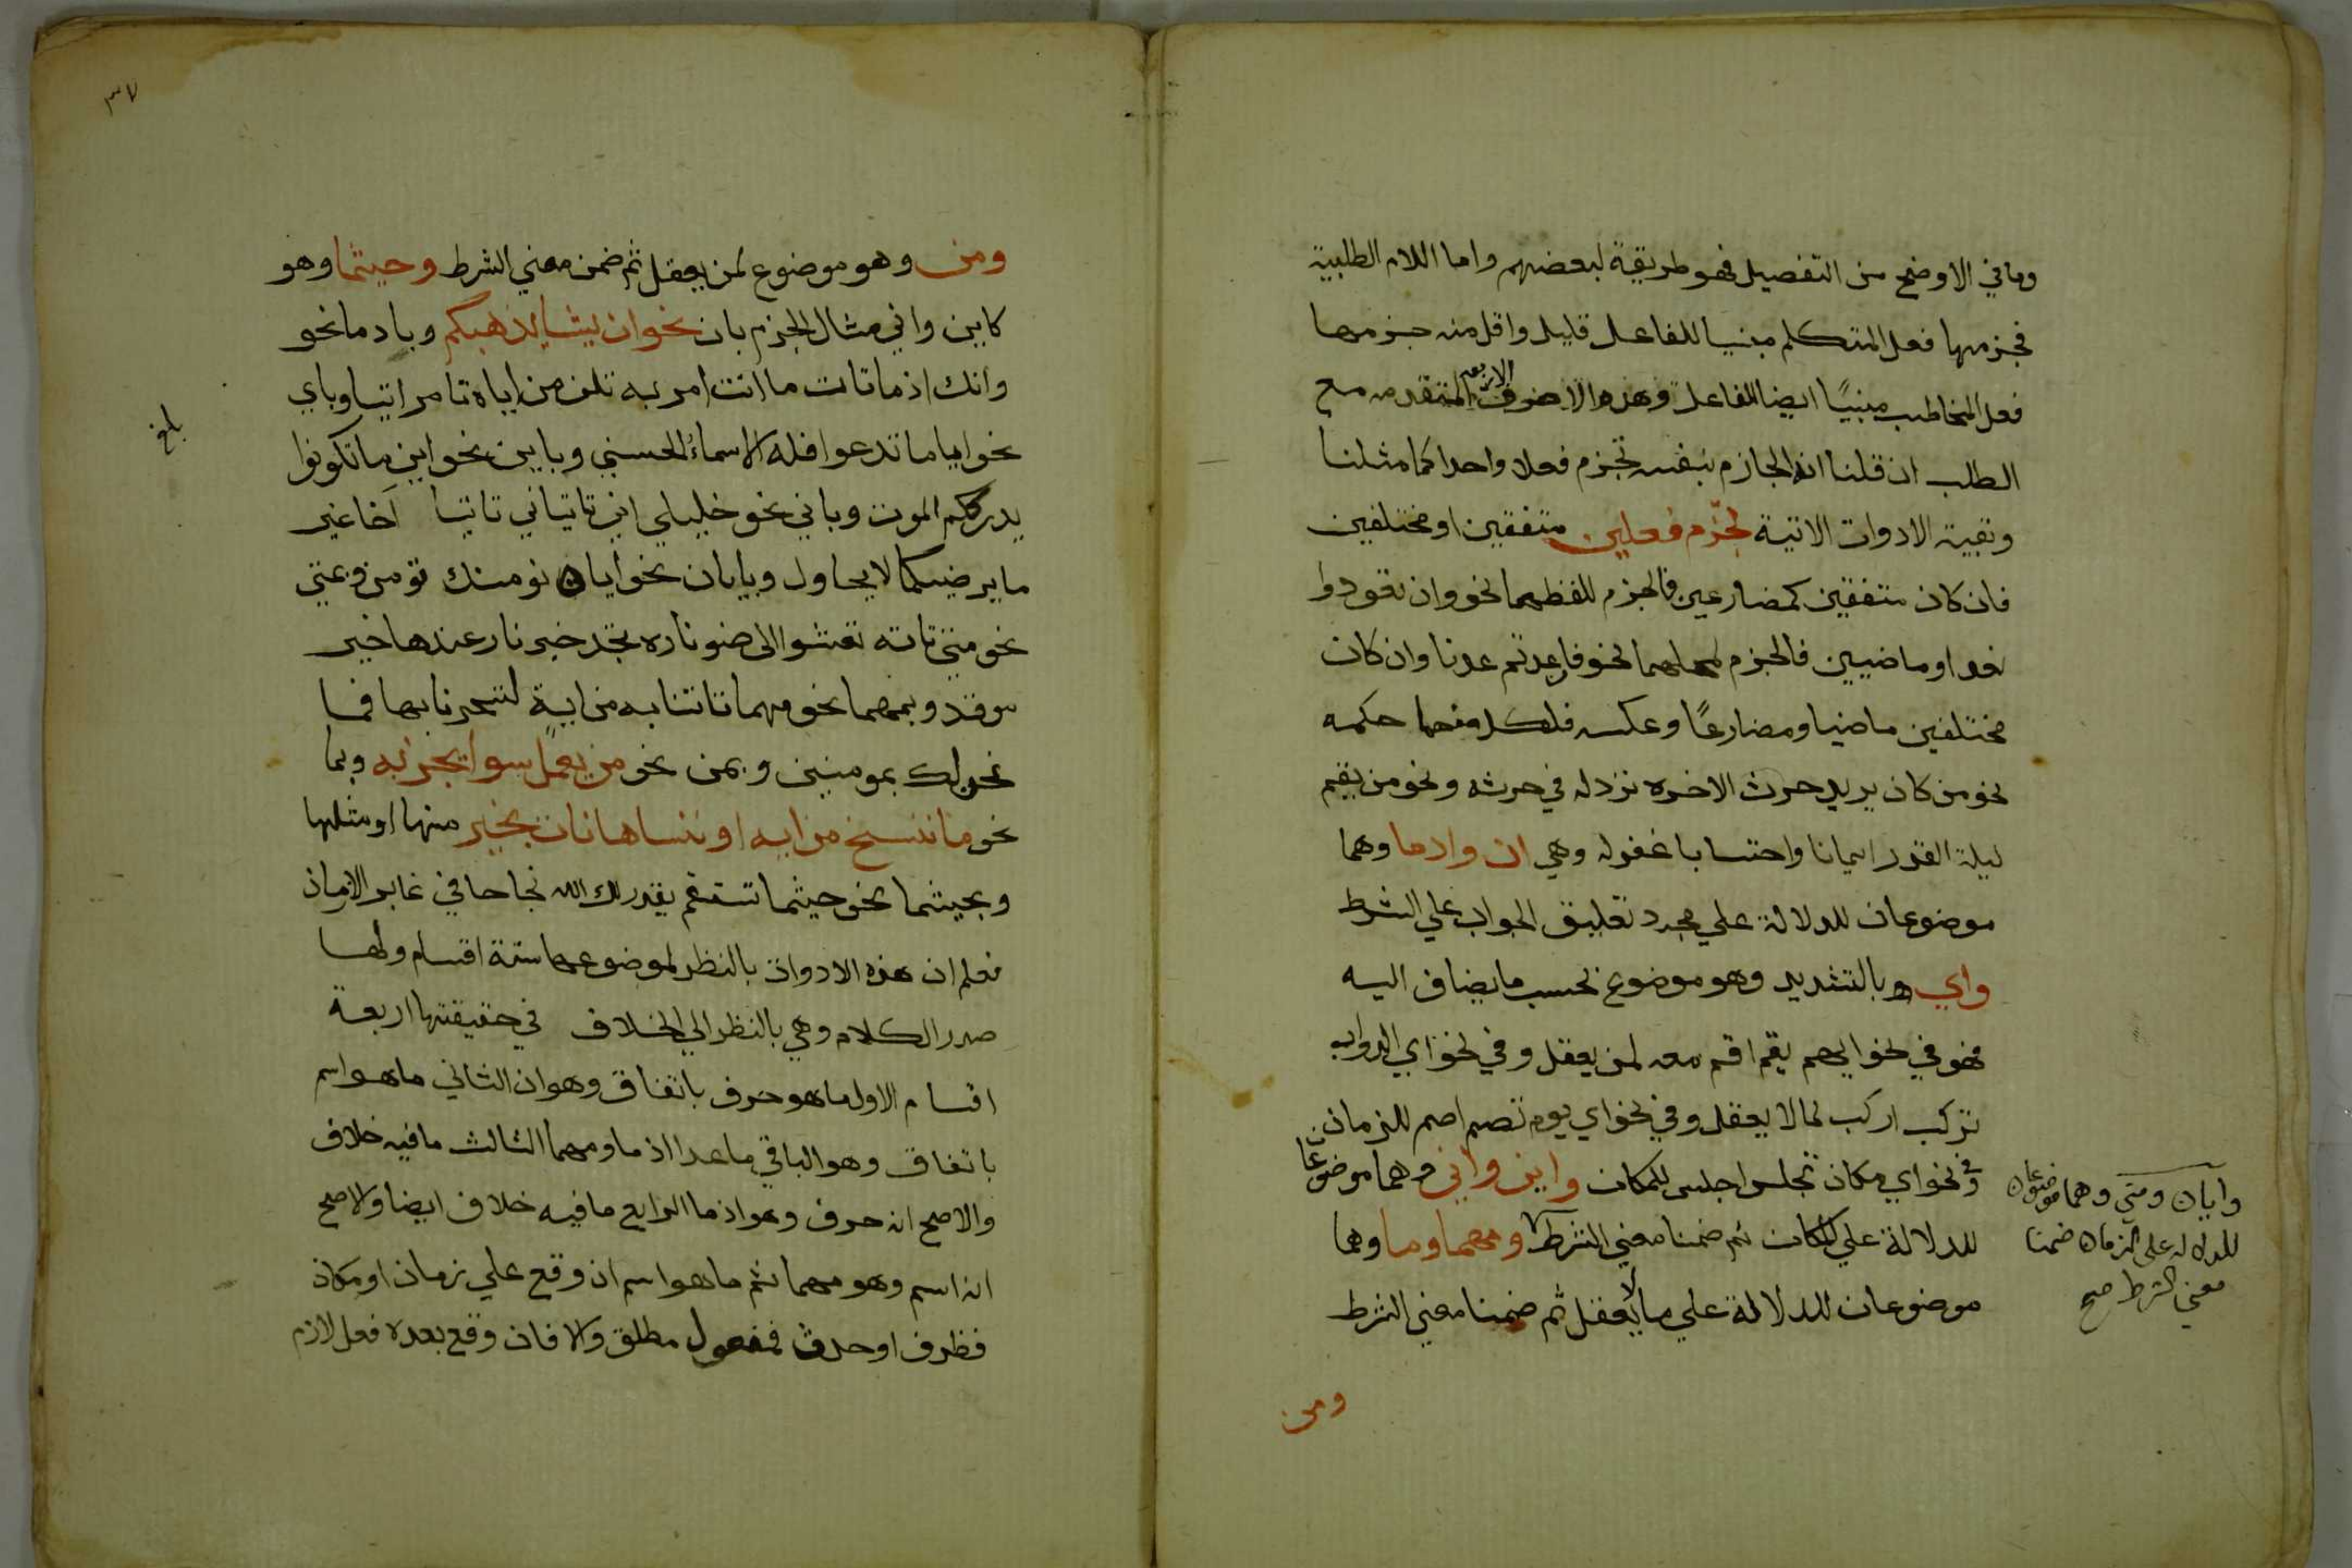 وما في الاوضح من التفصيل فهو طريقة لبعضهم واما اللام الطلبية
فجزمها فعل المتكلم مبنيا للفاعل قليل واقل منه جزمها
فعل المخاطب مبنيًا ايضا للفاعل وهذه الاحرف الاربعة المتقدمه مع
الطلب ان قلنا انه الجازم بنفسه تجزم فعلا واحدا كما مثلنا
وبقية الادوات الاتية تجزم فعلين متفقين او مختلفين
فان كان متفقين كمضارعين فالجزم للفظهما نحو وان تعودوا
نعد او ماضيين فالجزم لمحلهما نحو وان عدتم عدنا وان كان
مختلفين ماضيا ومضارعًا وعكسه فلكل منهما حكمه
نحو من كان يريد حرث الاخره نزد له في حرثه ونحو من يقم
ليلة القدر ايمانا واحتسابا غفر له وهي ان واذما وهما
موضوعان للدلالة علي مجرد تعليق الجواب علي الشرط
واي بالتشديد وهو موضوع بحسب ما يضاف اليه
فهو في نحو ايهم يقم اقم معه لمن يعقل وفي نحو اي الدواب
تركب اركب لما لا يعقل وفي نحو اي يوم تصم اصم للزمان
وفي نحو اي مكان تجلس اجلس للمكان واين واني وهما موضوعان
للدلالة علي المكان ثم ضمنا معني الشرط ومهما وما وهما
موضوعان للدلالة علي ما لا يعقل ثم ضمنا معني الشرط
وايان ومتي وهما موضوعان
للدلاله علي الزمان ضمنا
معني الشرط صح
ومن
٣٧
ومن وهو موضوع لمن يعقل ثم ضمن معني الشرط وحيثما وهو
كاين واني مثال الجزم بان نحو ان يشا يذهبكم وباذما نحو
وانك اذ ما تات ما انت امر به تلف من اياه تامر اتيا وباي
نحو اياما تدعوا فله الاسماء الحسني وباين نحو اين ما تكونوا
يدرككم الموت وباني نحو خليلي اني تاتياني تاتيا اخا غير
ما يرضيكما لا يحاول وبايان نحو ايان نومنك تومن وبمتي
نحو متي تاته تعشوا الى ضو ناره تجد خير نار عندها خير
موقد وبمهما نحو مهما تاتنا به من اية لتسحرنا بها فما
نحن لك بمومنين وبمن نحو من يعمل سوا يجز به وبما
نحو ما ننسخ من ايه او ننساها نات بخير منها او مثلها
وبحيثما نحو حيثما تستقم يقدر لك الله نجاحا في غابر الازمان
فعلم ان هذه الادوات بالنظر لموضوعها ستة اقسام ولها
صدر الكلام وهي بالنظر الي الخلاف في حقيقتها اربعة
اقسام الاول ما هو حرف باتفاق وهو ان الثاني ما هو اسم
باتفاق وهو الباقي ما عدا اذ ما ومهما الثالث ما فيه خلاف
والاصح انه حرف وهو اذ ما الرابع ما فيه خلاف ايضا والاصح
انه اسم وهو مهما ثم ما هو اسم ان وقع علي زمان او مكان
فظرف او حدث فمفعول مطلق والا فان وقع بعده فعل لازم
بلغ